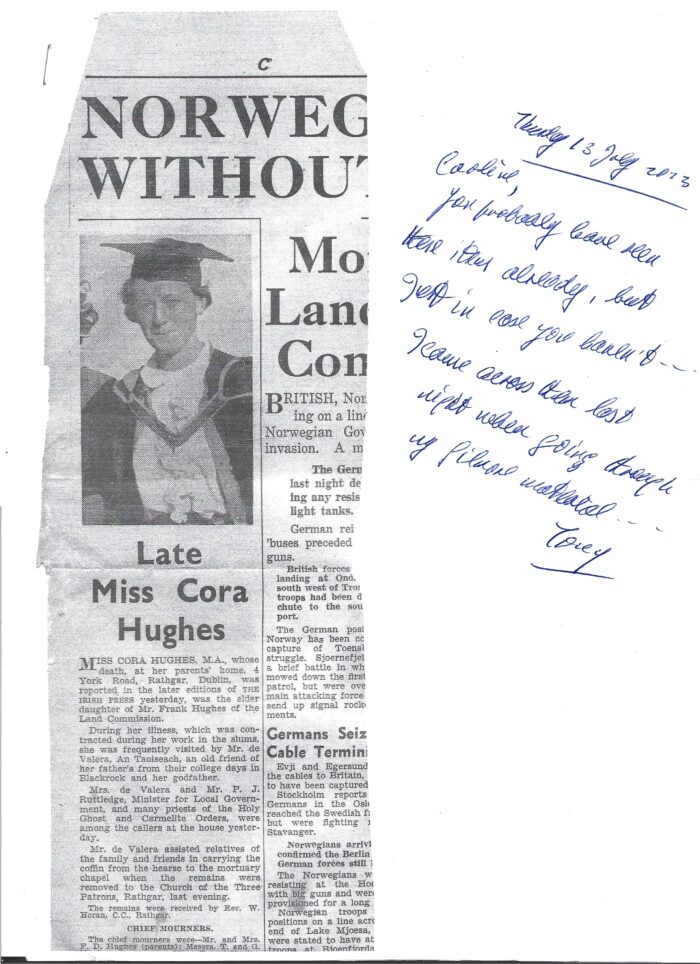 C
NORWEG
WITHOUT
Late
Miss Cora
Hughes
MISS CORA HUGHES, M.A., whose
death, at her parents' home, 4
York Road, Rathgar, Dublin, was
reported in the later editions of THE
IRISH PRESS yesterday, was the elder
daughter of Mr. Frank Hughes of the
Land Commission.
During her illness, which was con-
tracted during her work in the slums,
she was frequently visited by Mr. de
Valera, An Taoiseach, an old friend of
her father's from their college days in
Blackrock and her godfather.
Mrs. de Valera and Mr. P. J.
Ruttledge, Minister for Local Govern-
ment, and many priests of the Holy
Ghost and Carmelite Orders, were
among the callers at the house yester-
day.
Mr. de Valera assisted relatives of
the family and friends in carrying the
coffin from the hearse to the mortuary
chapel when the remains were
removed to the Church of the Three
Patrons, Rathgar, last evening.
The remains were received by Rev. W.
Horan, C.C., Rathgar.
CHIEF MOURNERS.
The chief mourners were—Mr. and Mrs.
F. D. Hughes (parents); Messrs. T. and G.
Mo
Land
Con
BRITISH, Nor
ing on a line
Norwegian Gov
invasion. A m
The Germ
last night de
ing any resis
light tanks.
German rei
'buses preceded
guns.
British forces
landing at Ond.
south west of Tro
troops had been d
chute to the sou
port.
The German posi
Norway has been cc
capture of Toens
struggle. Sjoernefjel
a brief battle in wh
mowed down the first
patrol, but were ove
main attacking force
send up signal rock
ments.
Germans Seiz
Cable Termini
Evji and Egersund
the cables to Britain,
to have been captured
Stockholm reports
Germans in the Osl
reached the Swedish f
but were fighting
Stavanger.
Norwegians arrivi
confirmed the Berlin
German forces still
The Norwegians w
resisting at the Ho
with big guns and were
provisioned for a long
Norwegian troops
positions on a line acr
end of Lake Mjoesa,
were stated to have at
troops at
Thursday 13 July 2023
Caroline,
You probably have seen
these items already, but
just in case you haven't ---
I came across them last
night when going through
my Gilmore material ---
Tony